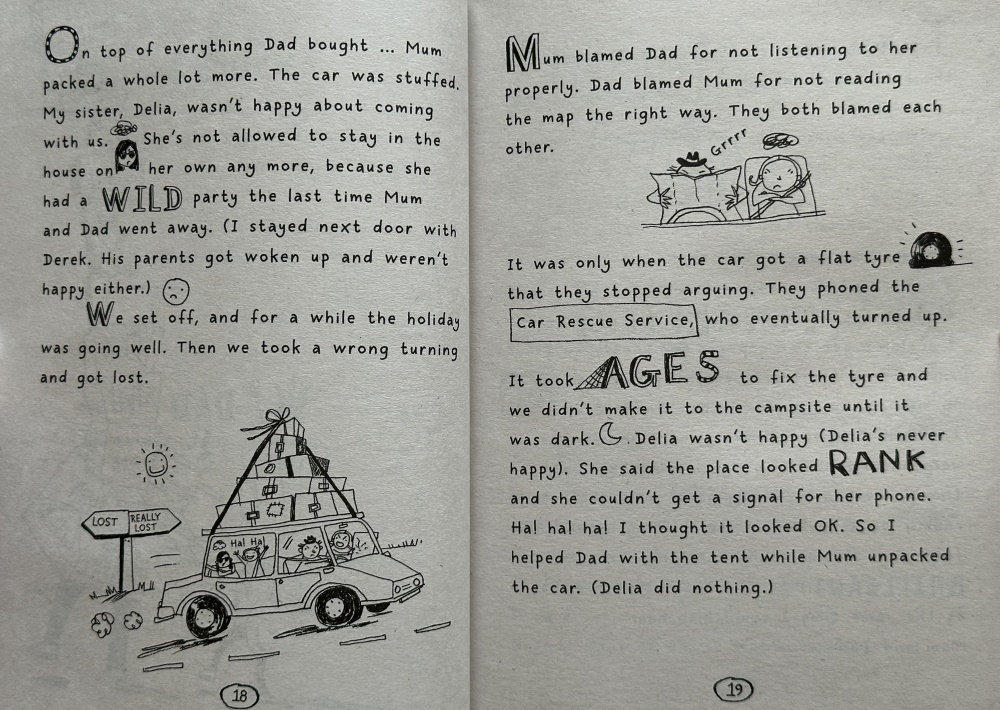 On top of everything Dad bought ... Mum
packed a whole lot more. The car was stuffed.
My sister, Delia, wasn't happy about coming
with us. She's not allowed to stay in the
house on her own any more, because she
had a WILD party the last time Mum
and Dad went away. (I stayed next door with
Derek. His parents got woken up and weren't
happy either.)
We set off, and for a while the holiday
was going well. Then we took a wrong turning
and got lost.
LOST
REALLY
LOST
Ha! Ha!
18
Mum blamed Dad for not listening to her
properly. Dad blamed Mum for not reading
the map the right way. They both blamed each
other.
Grrrr
It was only when the car got a flat tyre
that they stopped arguing. They phoned the
Car Rescue Service, who eventually turned up.
It took AGES to fix the tyre and
we didn't make it to the campsite until it
was dark. . Delia wasn't happy (Delia's never
happy). She said the place looked RANK
and she couldn't get a signal for her phone.
Ha! ha! ha! I thought it looked OK. So I
helped Dad with the tent while Mum unpacked
the car. (Delia did nothing.)
19